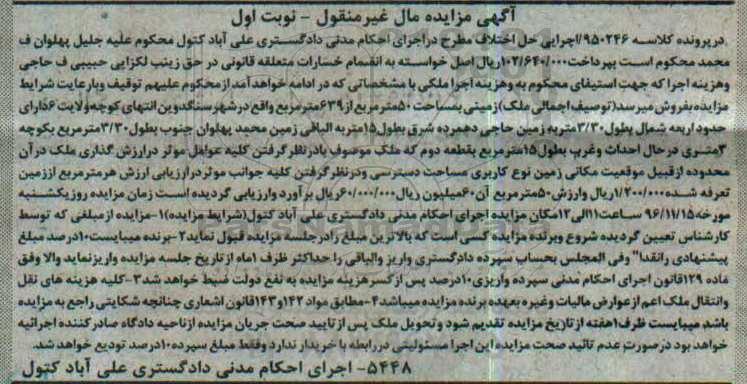 آگهی مزایده مال غیرمنقول - نوبت اول
درپرونده کلاسه ۹۵۰۲۴۶/اجرایی حل اختلاف مطرح دراجرای احکام مدنی دادگستری علی آباد کتول محکوم علیه جلیل پهلوان ف
محمد محکوم است بپرداخت۱۰۲/۶۴۰/۰۰۰ریال اصل خواسته به انضمام خسارات متعلقه قانونی در حق زینب لکزایی حبیبی ف حاجی
وهزینه اجرا که جهت استیفای محکوم به وهزینه اجرا ملکی با مشخصاتی که در ادامه خواهد آمد ازمحکوم علیهم توقیف وبارعایت شرایط
مزایده بفروش میرسد(توصیف اجمالی ملک)زمینی بمساحت ۵۰مترمربع از۶۳۹مترمربع واقع درشهرسنگدوین انتهای کوچه ولایت ۶دارای
حدود اربعه شمال بطول۳/۳۰متربه زمین حاجی دهمرده شرق بطول۱۵متربه الباقی زمین محمد پهلوان جنوب بطول۳/۳۰مترمربع بکوچه
۳متری درحال احداث وغرب بطول۱۵مترمربع بقطعه دوم که ملک موصوف بادرنظرگرفتن کلیه عوامل موثر درارزش گذاری ملک درآن
محدوده ازقبیل موقعیت مکانی زمین نوع کاربری مساحت دسترسی ودرنظرگرفتن کلیه جوانب موثردرارزیابی ارزش هرمترمربع اززمین
تعرفه شده۱/۲۰۰/۰۰۰ریال وارزش۵۰مترمربع آن۶۰میلیون ریال۶۰/۰۰۰/۰۰۰ریال برآورد وارزیابی گردیده است زمان مزایده روزیکشنبه
مورخه۹۶/۱۱/۱۵ ساعت۱۱الی۱۲مکان مزایده اجرای احکام مدنی دادگستری علی آباد کتول(شرایط مزایده)۱-مزایده ازمبلغی که توسط
کارشناس تعیین گردیده شروع وبرنده مزایده کسی است که بالاترین مبلغ رادرجلسه مزایده قبول نماید۲-برنده میبایست۱۰درصد مبلغ
پیشنهادی رانقدا" وفی المجلس بحساب سپرده دادگستری واریز والباقی را حداکثر ظرف ۱ماه ازتاریخ جلسه مزایده واریزنماید والا وفق
ماده ۱۲۹قانون اجرای احکام مدنی سپرده واریزی۱۰درصد پس ازکسرهزینه مزایده به نفع دولت ضبط خواهد شد۳-کلیه هزینه های نقل
وانتقال ملک اعم ازعوارض مالیات وغیره بعهده برنده مزایده میباشد۴-مطابق مواد ۱۴۲و۱۴۳قانون اشعاری چنانچه شکایتی راجع به مزایده
باشد میبایست ظرف۱هفته ازتاریخ مزایده تقدیم شود وتحویل ملک پس ازتایید صحت جریان مزایده ازناحیه دادگاه صادرکننده اجرائیه
خواهد بود درصورت عدم تائید صحت مزایده این اجرا مسئولیتی دررابطه با خریدار ندارد وفقط مبلغ سپرده۱۰درصد تودیع خواهد شد.
۵۴۴۸- اجرای احکام مدنی دادگستری علی آباد کتول